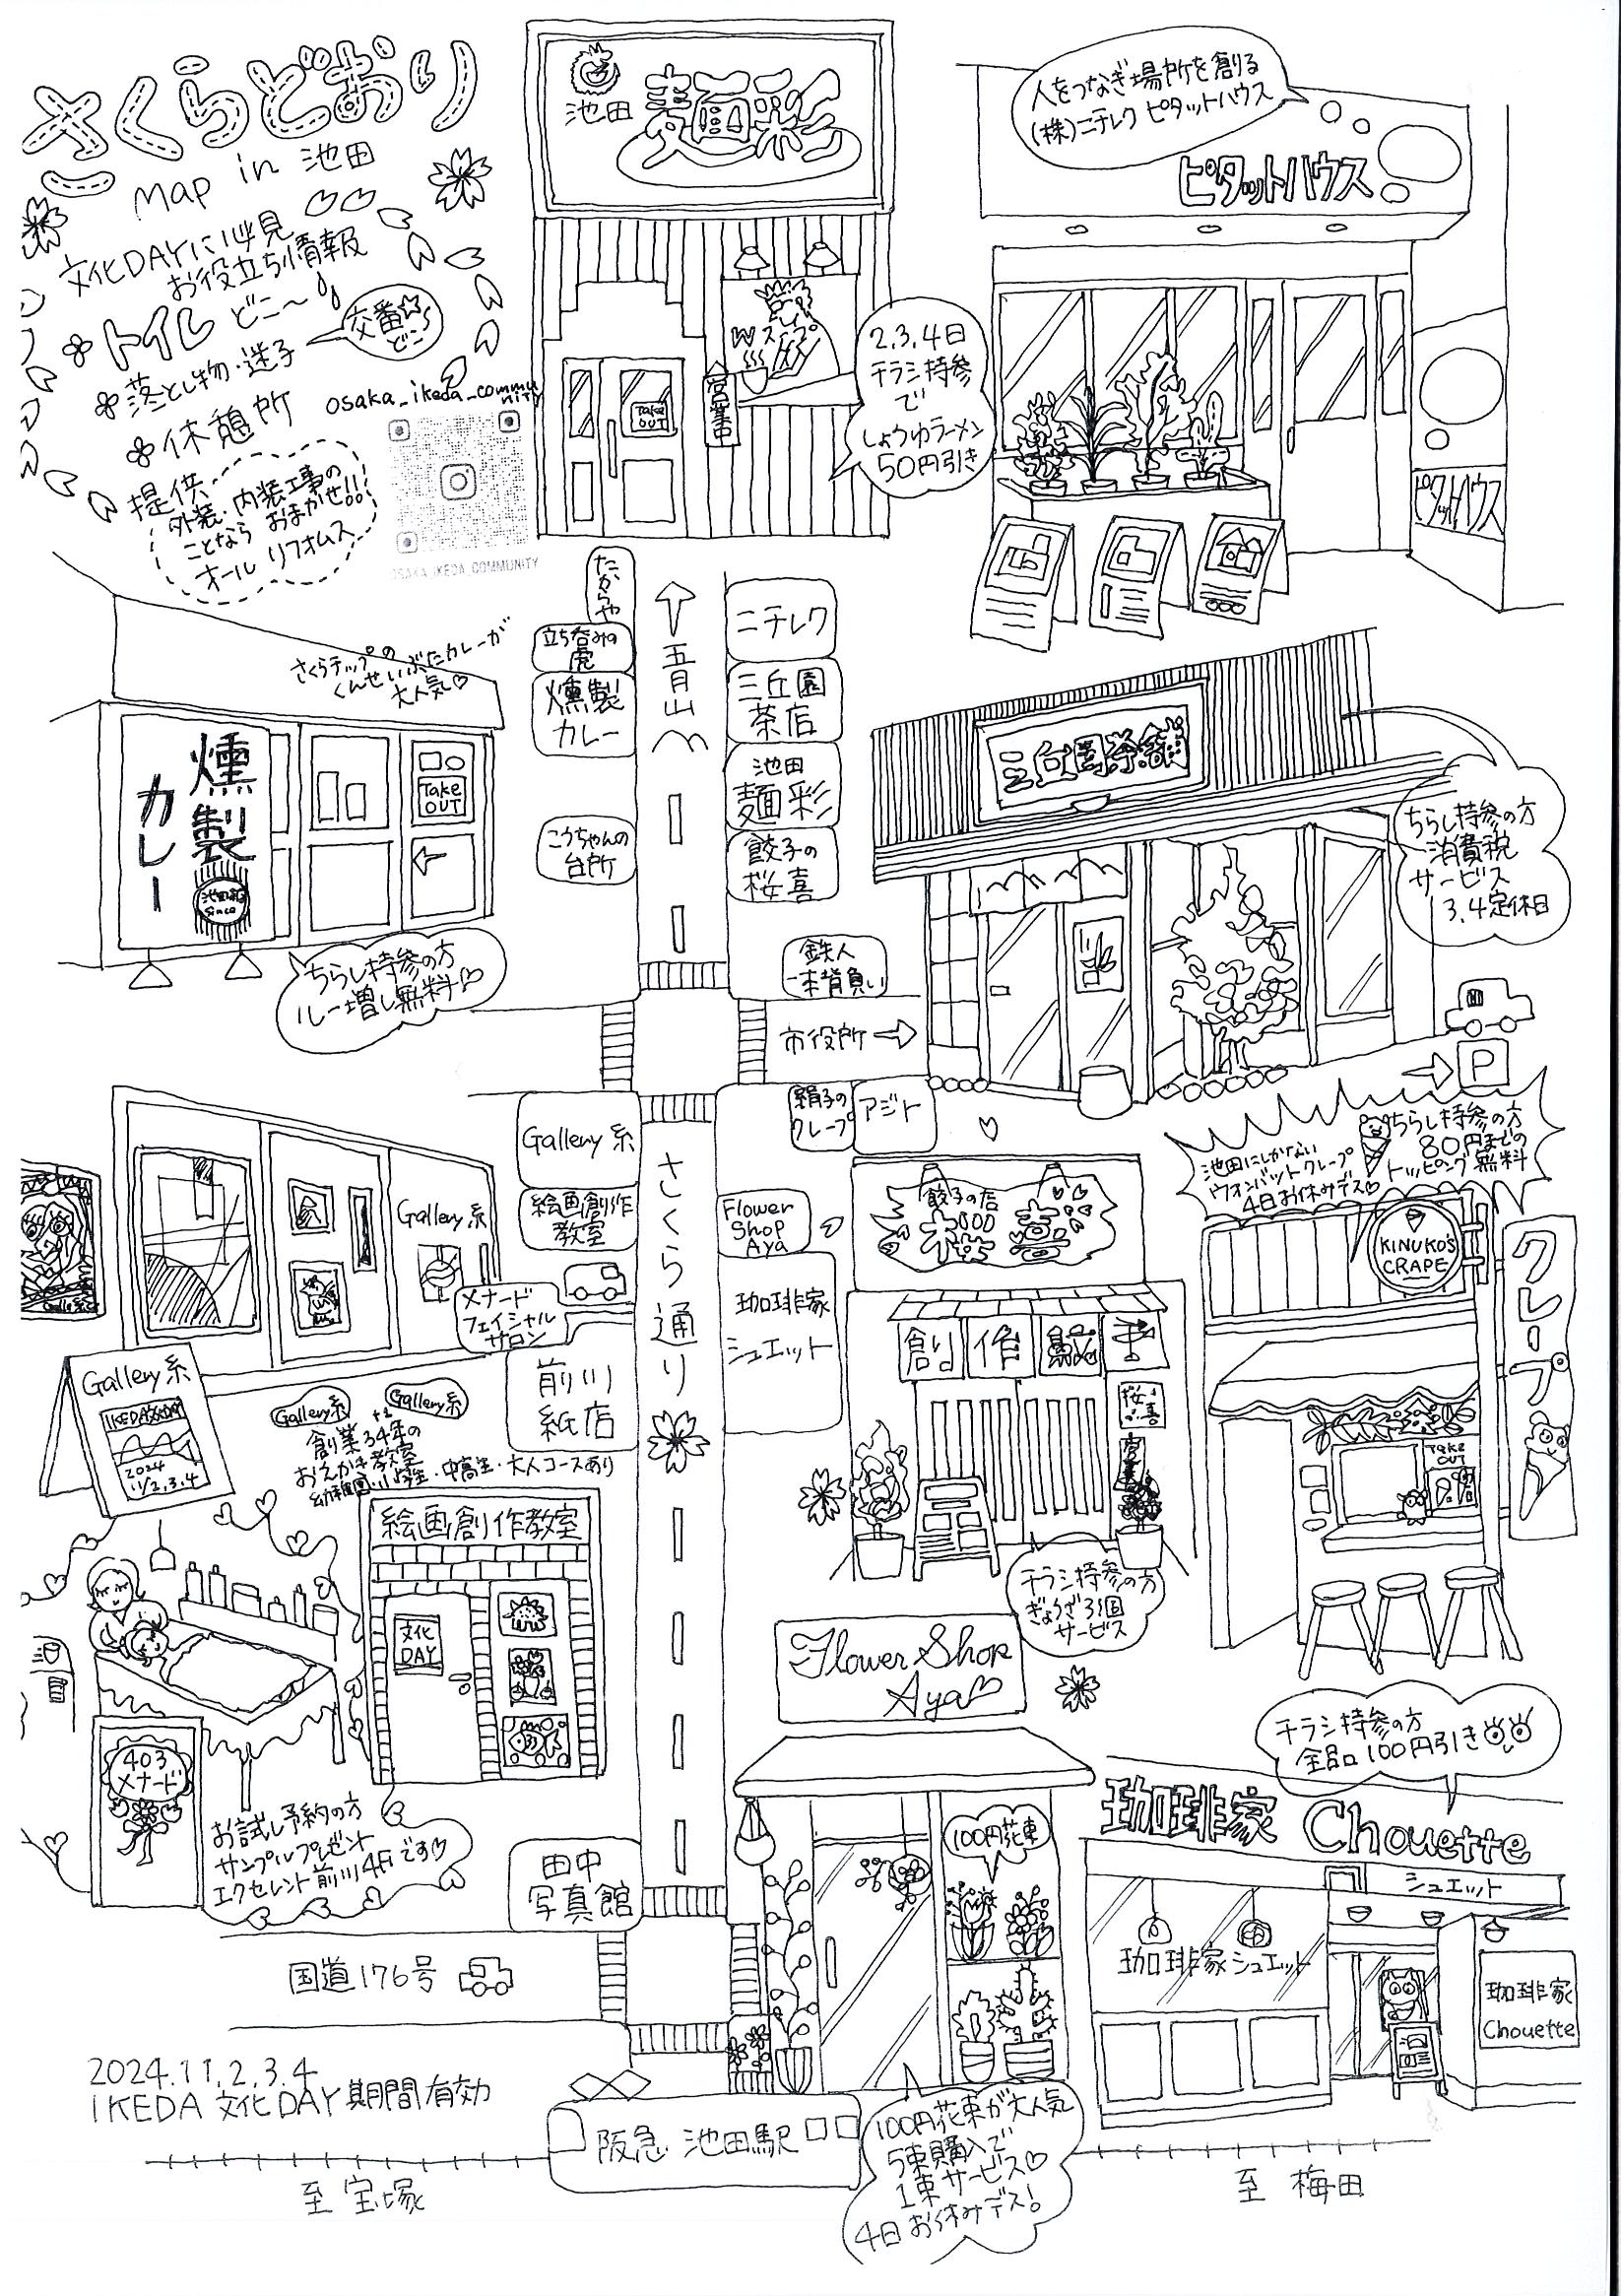 さくらどおり
Map in 池田
文化DAYに必見
お役立ち情報
トイレ どこ〜
落とし物・迷子
交番どこ〜
休憩所
提供
外装・内装工事の
ことなら おまかせ!!
オール リフォムス
osaka_ikeda_community
OSAKA IKEDA COMMUNITY
池田
麺彩
Wスープ
営業中
Take OUT
2,3,4日
チラシ持参
で
しょうゆラーメン
50円引き
人をつなぎ場所を創る
(株)ニチレク ピタットハウス
ピタットハウス
ピタットハウス
たからや
立ち呑みの
虎
燻製
カレー
こうちゃんの
台所
五月山
ニチレク
三丘園
茶店
池田
麺彩
餃子の
桜喜
鉄人
一本背負い
市役所
さくらチップの
くんせいぶたカレーが
大人気♡
燻製
カレー
Take OUT
ちらし持参の方
ルー増し無料♡
三丘園茶舗
ちらし持参の方
消費税
サービス
3,4定休日
P
Gallery 糸
絵画創作
教室
メナード
フェイシャル
サロン
前川
紙店
田中
写真館
さくら通り
絹子の
クレープ
アジト
Flower
Shop
Aya
珈琲家
シュエット
Gallery 糸
Gallery 糸
IKEDA文化DAY
2024
11/2,3,4
Gallery糸
Gallery糸
創業34年の
おえかき教室
幼稚園・小学生・中高生・大人コースあり
絵画創作教室
文化
DAY
403
メナード
お試し予約の方
サンプルプレゼント
エクセレント前川4Fです♡
餃子の店
桜喜
創作餃子
桜喜
営業中
チラシ持参の方
ぎょうざ3個
サービス
池田にしかない
ウォンバットクレープ
4日お休みデス♡
ちらし持参の方
80円までの
トッピング無料
KINUKO'S
CRAPE
クレープ
Take
OUT
Flower Shop
Aya♡
100円花束
100円花束が大人気
5束購入で
1束サービス♡
4日お休みデス!
チラシ持参の方
全品100円引き
珈琲家 Chouette
シュエット
珈琲家シュエット
珈琲家
Chouette
国道176号
2024.11,2,3,4
IKEDA 文化DAY期間有効
阪急 池田駅
至 宝塚
至 梅田